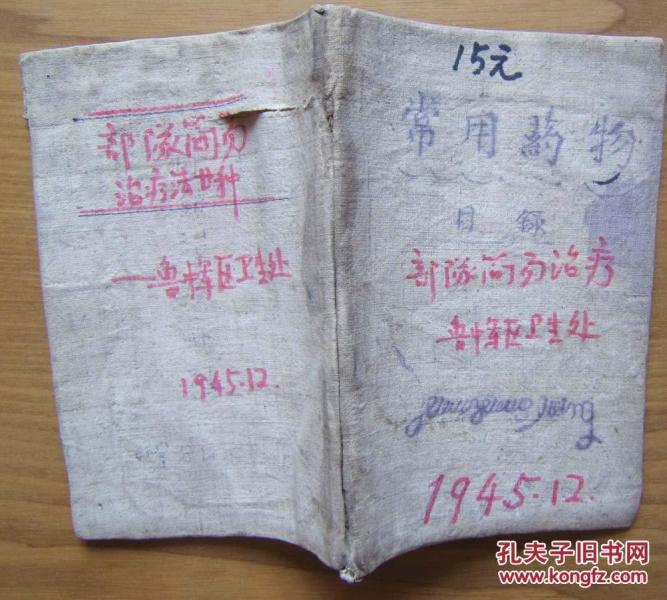 部隊简易
治疗法廿种
——鲁中军区卫生处
1945.12.
15元
常用药物
目录
部隊简易治疗
鲁中军区卫生处
1945.12.
孔夫子旧书网
www.kongfz.com